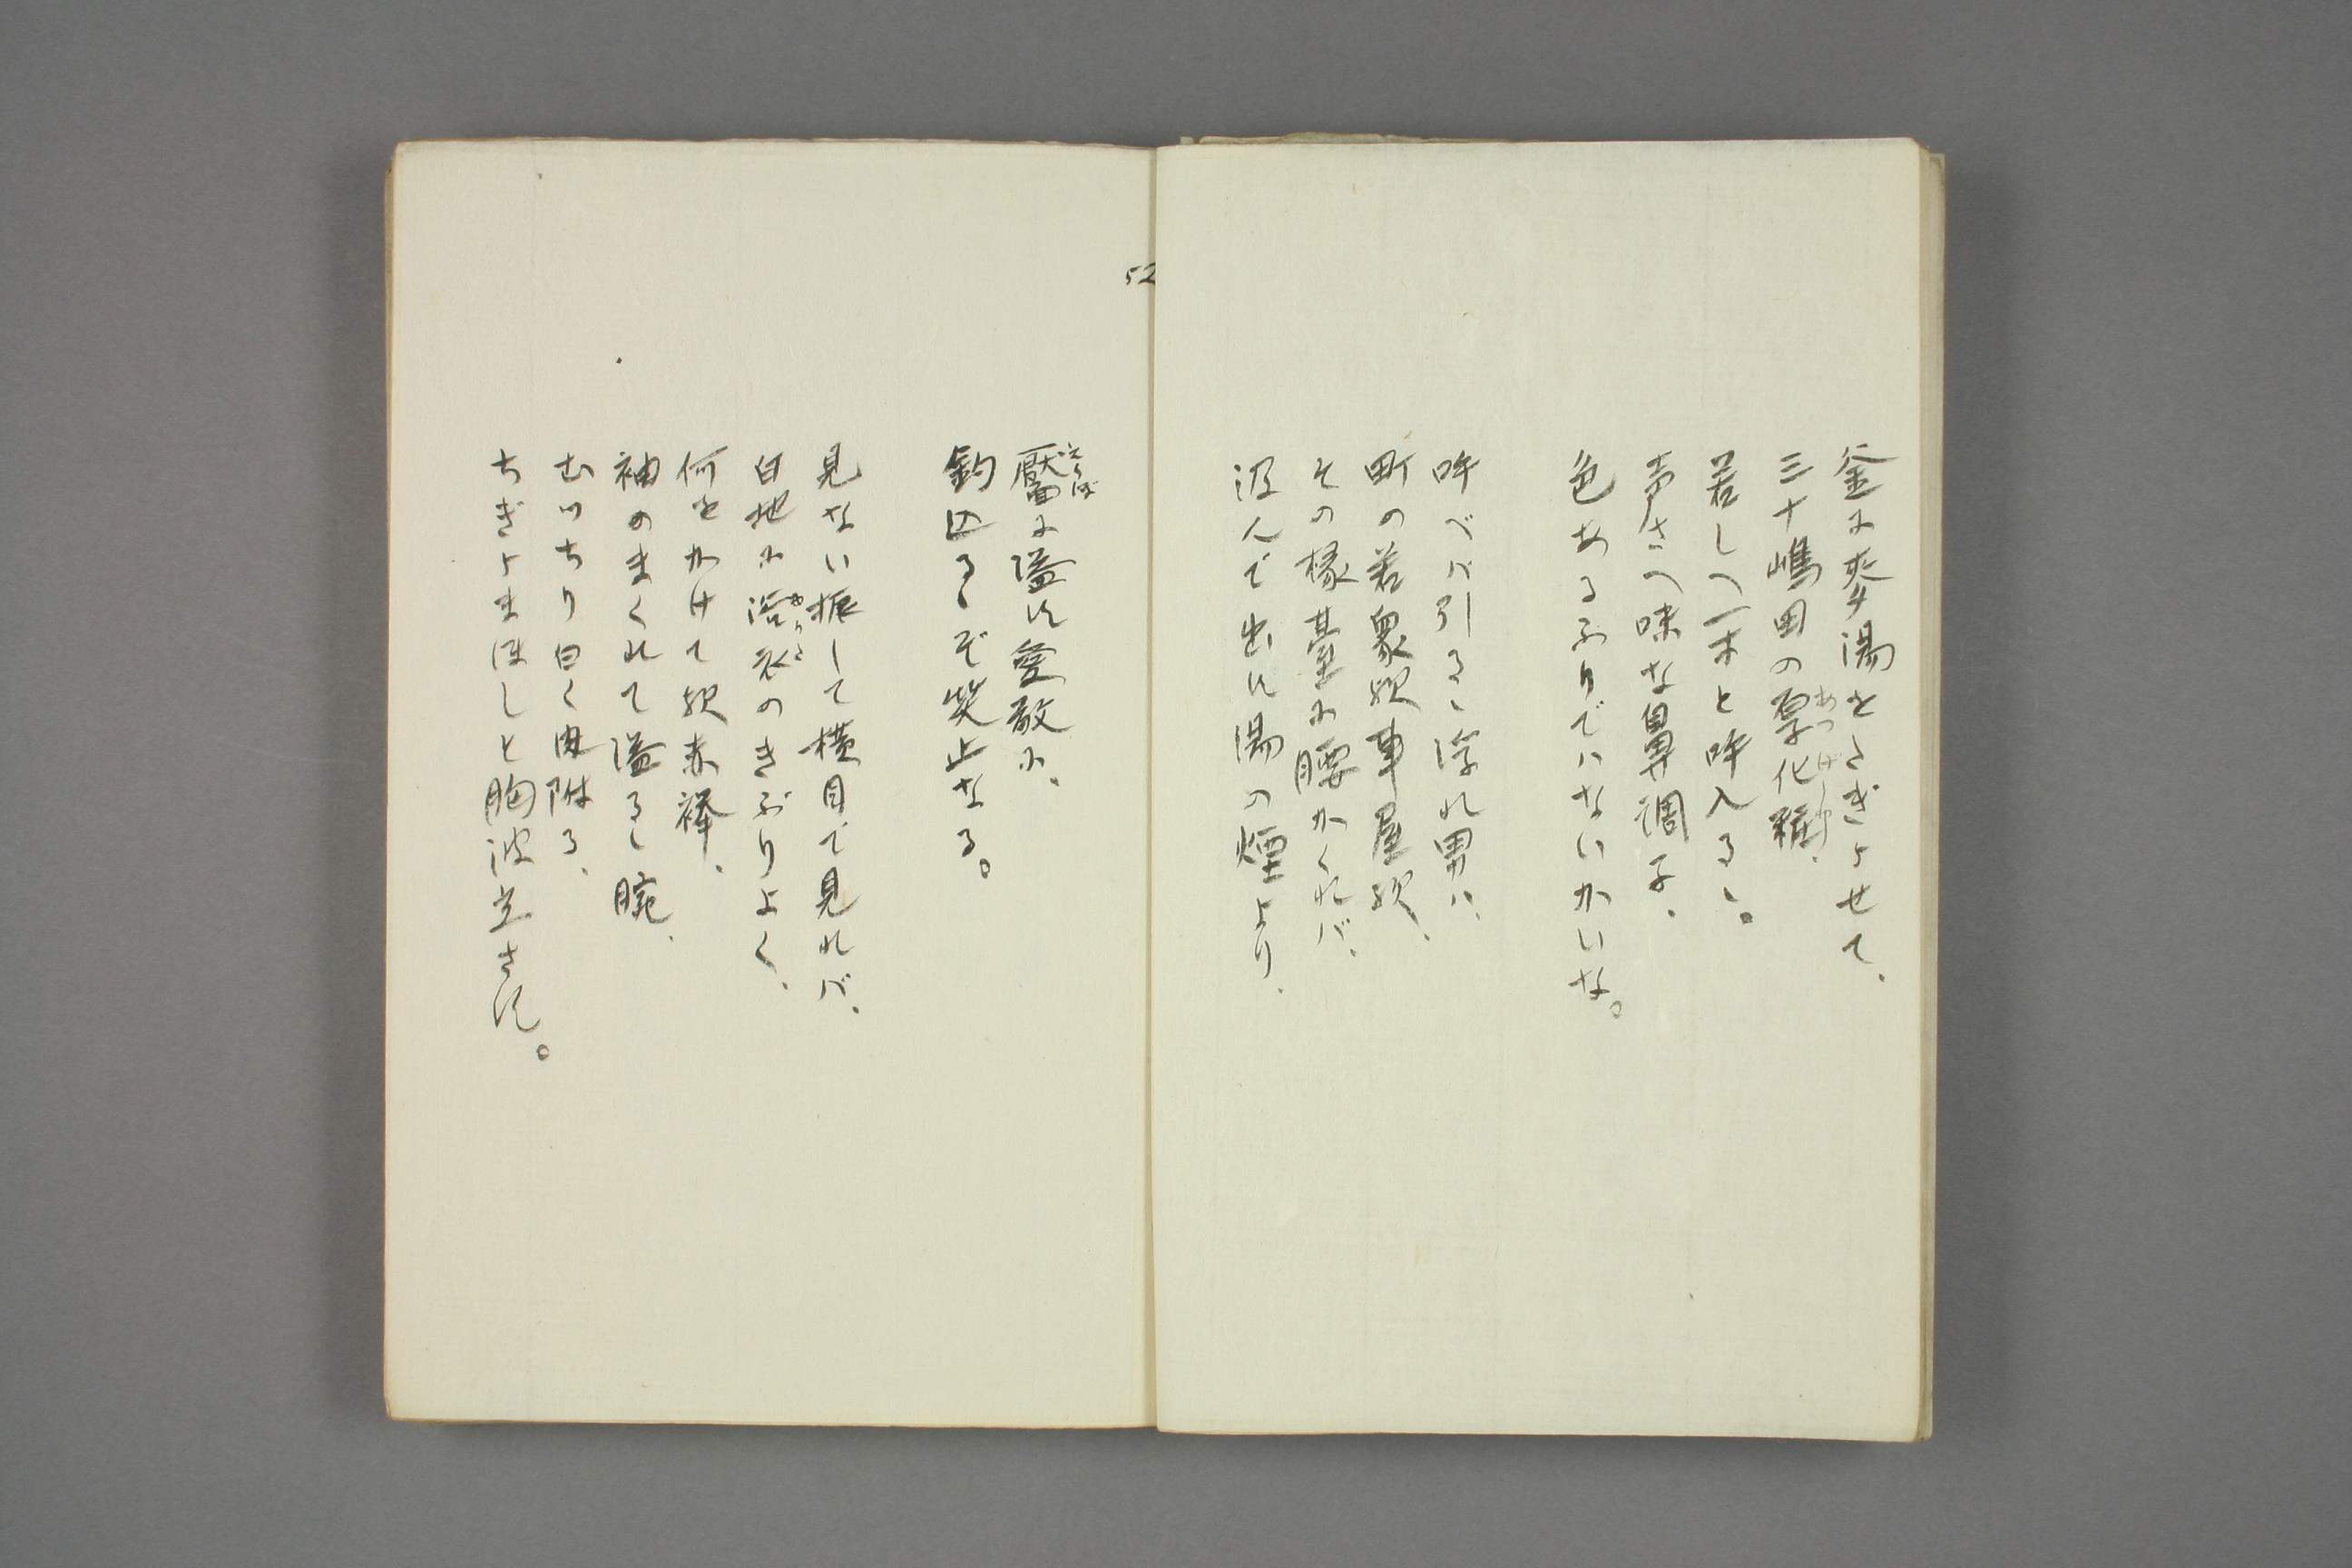 釜に麥湯をたぎらせて、
三十嶋田の厚化粧、
若しへ一寸と呼入るゝ。
声さへ味な鼻調子、
色あるふりでハないかいな。
呼べバ引るゝ浮れ男ハ、
町の若衆歟車屋歟、
その椽臺に腰かくれバ、
汲んで出に湯の煙より、
靨に溢に愛敬に、
釣込るゝぞ笑止なる。
見ない振して横目で見れバ、
白地に浴衣のきぶりよく、
何をかけて歟赤襷、
袖のまくれて溢るゝ腕、
むツちり白く肉附る、
ちぎらまほしと胸波立さに。
52